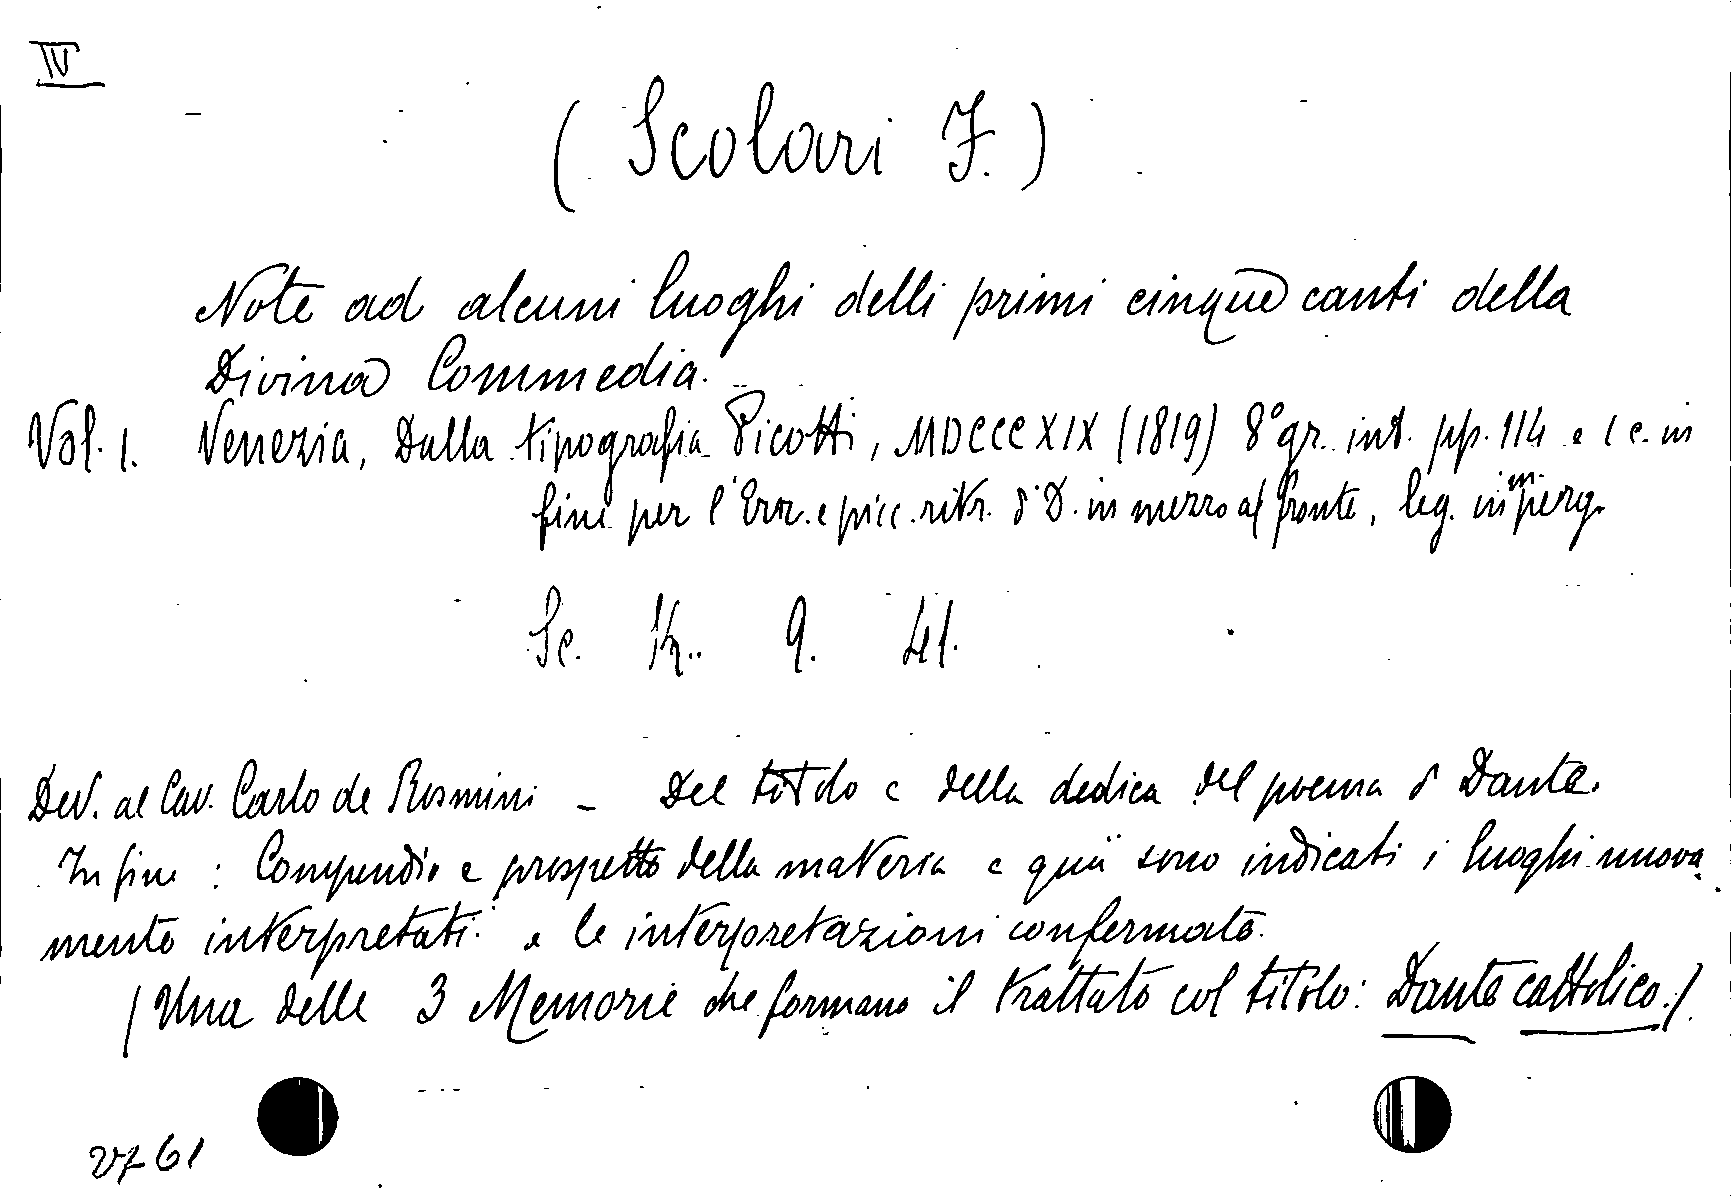 IV
( Scolari F. )
Note ad alcuni luoghi delli primi cinque canti della
Divina Commedia.
Vol. 1. Venezia, Dalla tipografia Picotti, MDCCCXIX (1819) 8° gr. int. pp. 114 e 1 c. in
fine per l'Err. e picc. ritr. d D. in mezzo al fronte, leg. in m. perg.
Sc. K. 9. 41.
Ded. al Cav. Carlo de Rosmini - Del titolo e della dedica del poema d Dante.
In fine : Compendio e prospetto della materia e quì sono indicati i luoghi nuova
mente interpretati e le interpretazioni confermate.
(Una delle 3 Memorie che formano il trattato col titolo: Dante cattolico.)
61